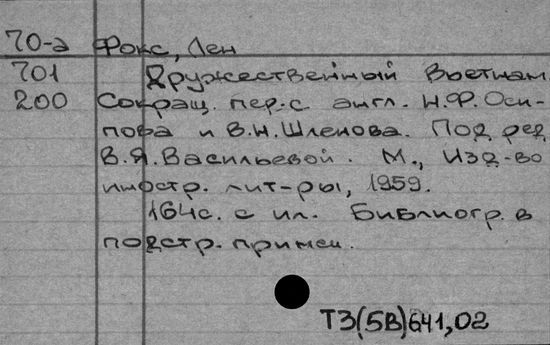 70-а Фокс, Лен
701 Дружественный Вьетнам
200 Сокращ. пер. с англ. Н.Ф. Оси-
пова и В.Н. Шленова. Под ред
В.Я. Васильевой. М., Изд-во
иностр. лит-ры, 1959.
164с. с ил. Библиогр. в
подстр. примеч.
Т3(5В)641,02